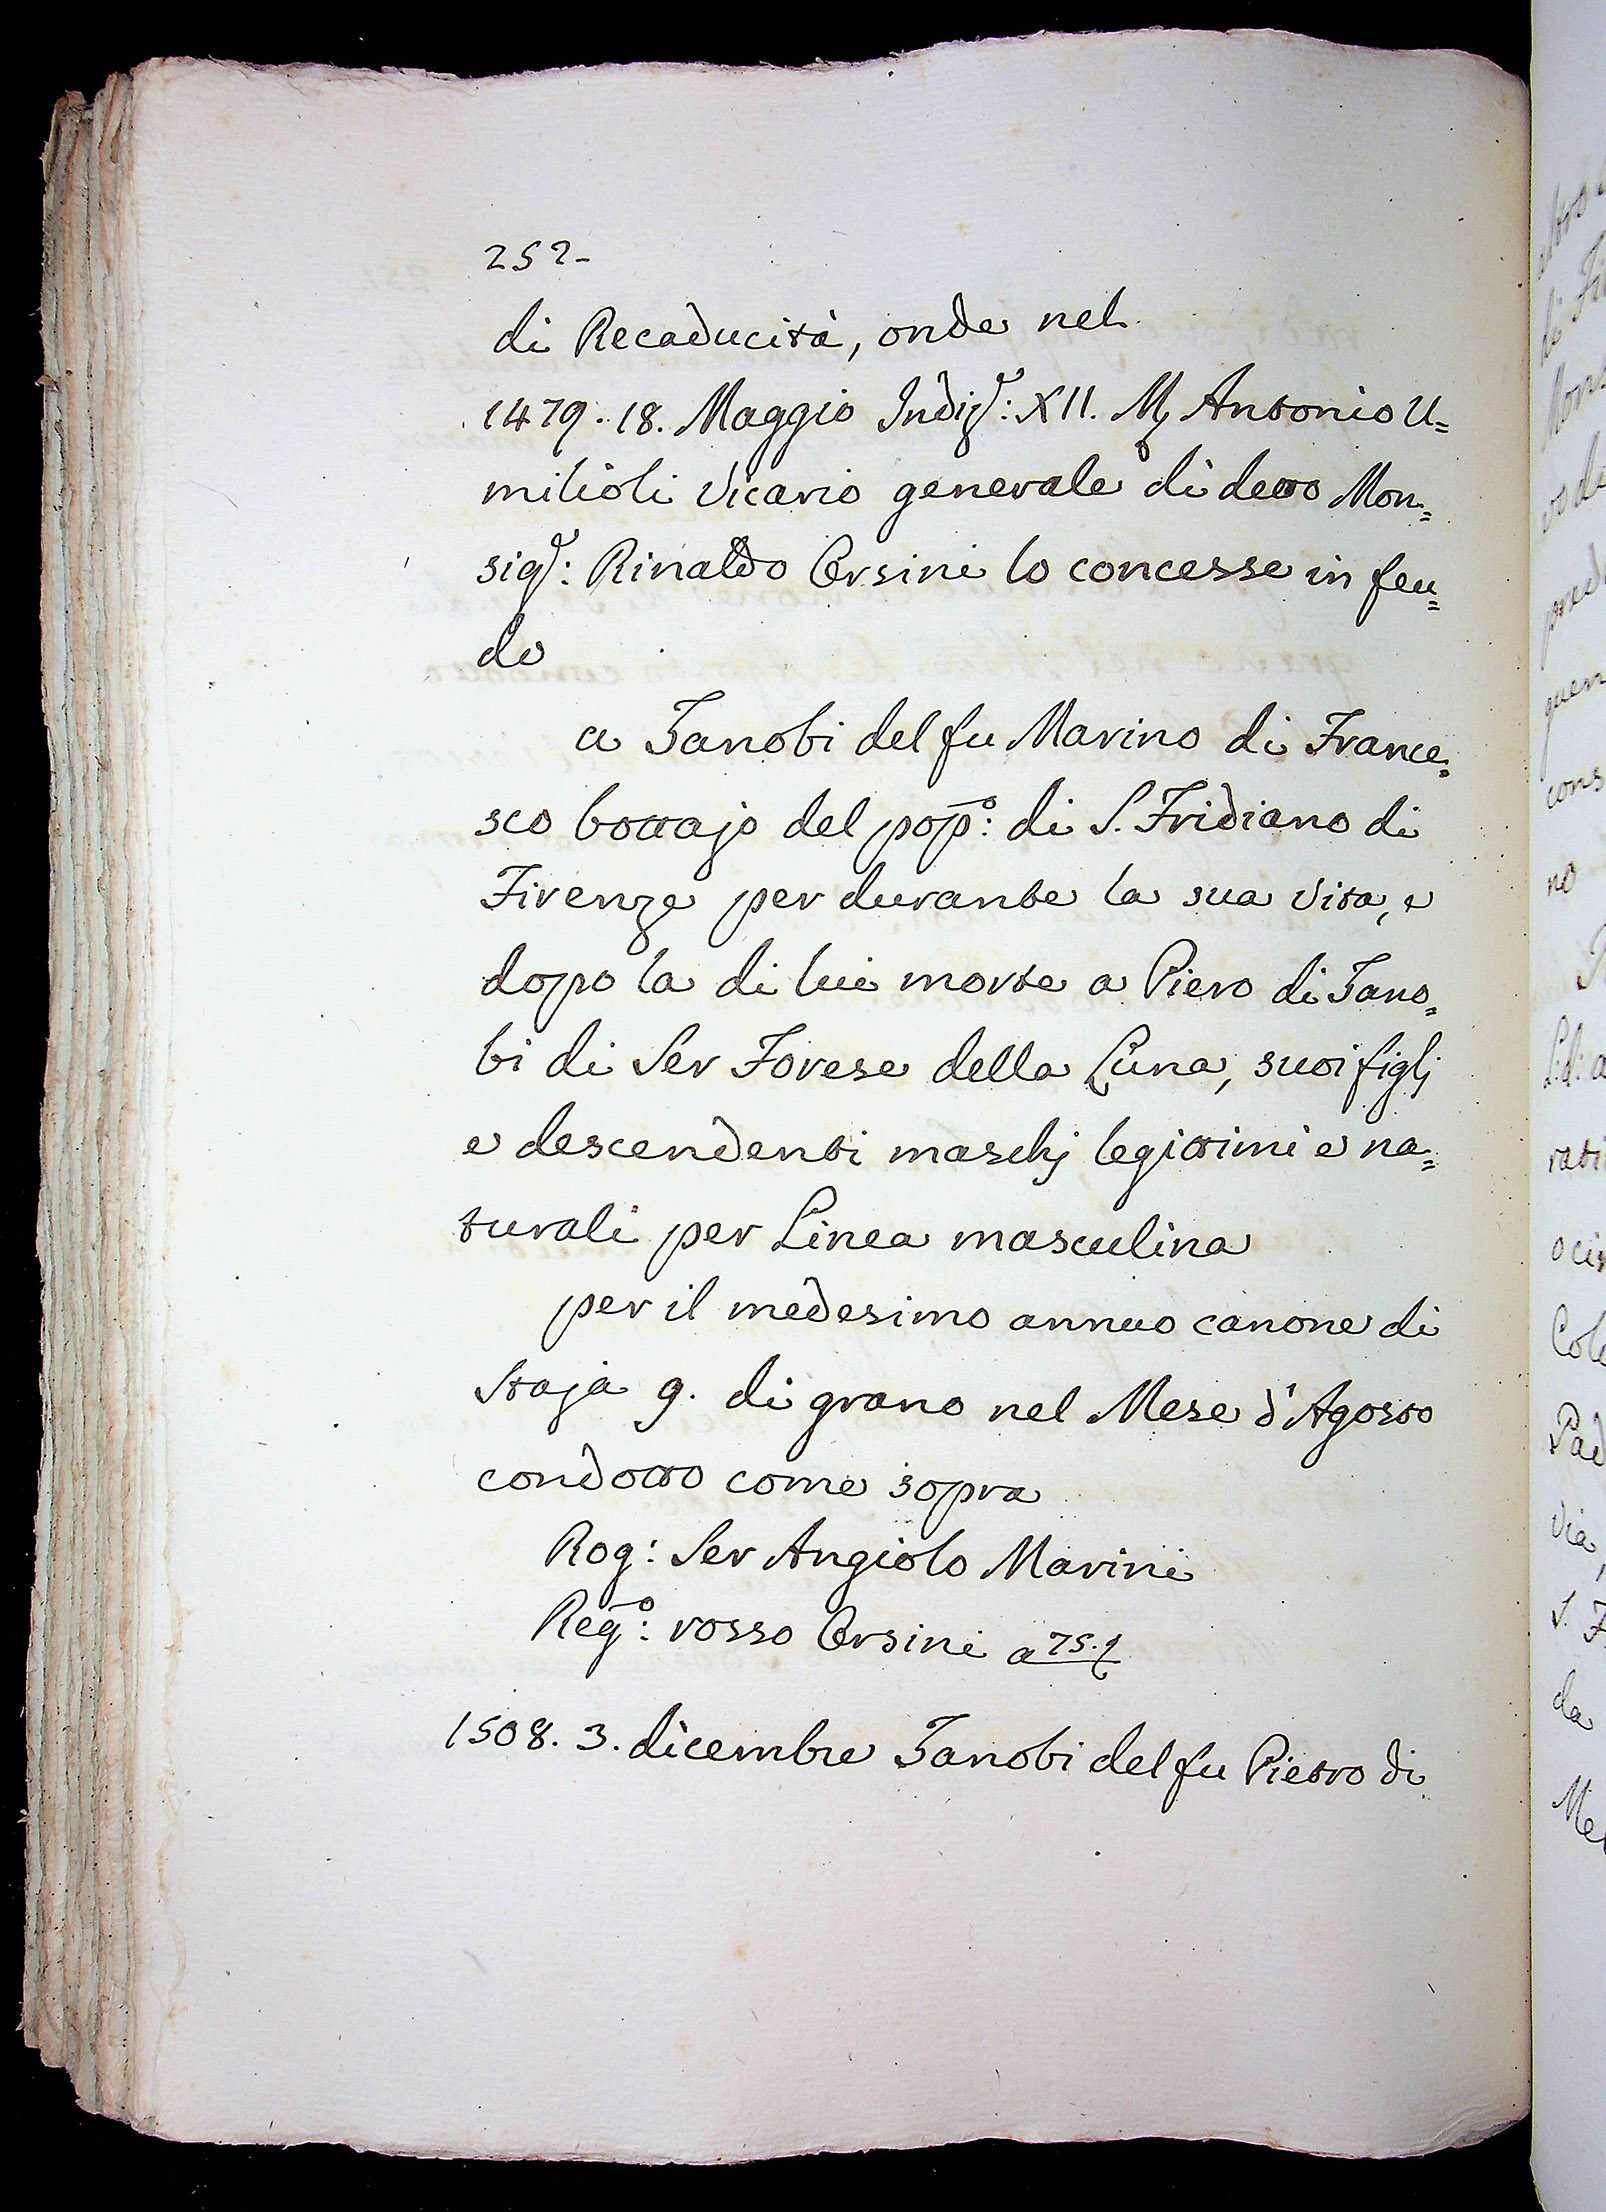 252-
di Recaducità, onde nel
1479. 18. Maggio Indiz.e: XII. M. Antonio U=
milioli Vicario generale di detto Mon=
sig.e: Rinaldo Orsini lo concesse in feu=
do
a Zanobi del fu Marino di France=
sco bottajo del pop.o: di S. Fridiano di
Firenze per durante la sua vita, e
dopo la di lui morte a Piero di Zano=
bi di Ser Forese della Luna, suoi figlj
e descendenti maschj legittimi e na=
turali per Linea masculina
per il medesimo annuo canone di
Staja 9. di grano nel Mese d'Agosto
condotto come sopra
Rog: Ser Angiolo Marini
Reg.o: rosso Orsini a 75.
1508. 3. dicembre Zanobi del fu Pietro di